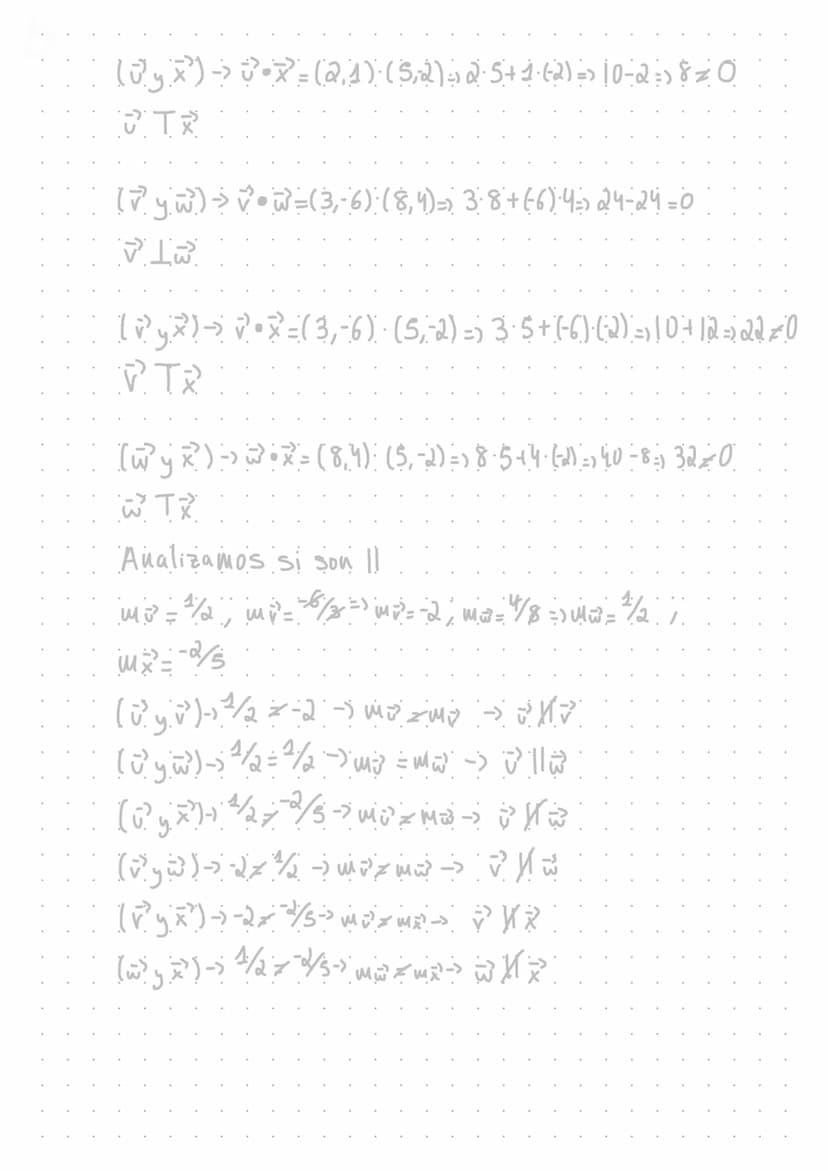 (u⃗ y x⃗) → u⃗ • x⃗ = (2,1) · (5,-2) ⇒ 2·5+1·(-2) ⇒ 10-2 ⇒ 8 ≠ 0
u⃗ ⊤ x⃗
(v⃗ y w⃗) → v⃗ • w⃗ = (3,-6) · (8,4) ⇒ 3·8+(-6)·4 ⇒ 24-24 = 0
v⃗ ⊥ w⃗
(v⃗ y x⃗) → v⃗ • x⃗ = (3,-6) · (5,-2) ⇒ 3·5+(-6)·(-2) ⇒ 10+12 ⇒ 22 ≠ 0
v⃗ ⊤ x⃗
(w⃗ y x⃗) → w⃗ • x⃗ = (8,4) · (5,-2) ⇒ 8·5+4·(-2) ⇒ 40-8 ⇒ 32 ≠ 0
w⃗ ⊤ x⃗
Analizamos si son ||
mu⃗ = 1/2 ; mv⃗ = -6/3 ⇒ mv⃗ = -2 ; mw⃗ = 4/8 ⇒ mw⃗ = 1/2 ;
mx⃗ = -2/5
(u⃗ y v⃗) → 1/2 ≠ -2 → mu⃗ ≠ mv⃗ → u⃗ ∦ v⃗
(u⃗ y w⃗) → 1/2 = 1/2 → mu⃗ = mw⃗ → u⃗ || w⃗
(u⃗ y x⃗) → 1/2 ≠ -2/5 → mu⃗ ≠ mw⃗ → u⃗ ∦ w⃗
(v⃗ y w⃗) → -2 ≠ 1/2 → mv⃗ ≠ mw⃗ → v⃗ ∦ w⃗
(v⃗ y x⃗) → -2 ≠ -2/5 → mv⃗ ≠ mx⃗ → v⃗ ∦ x⃗
(w⃗ y x⃗) → 1/2 ≠ -2/5 → mw⃗ ≠ mx⃗ → w⃗ ∦ x⃗